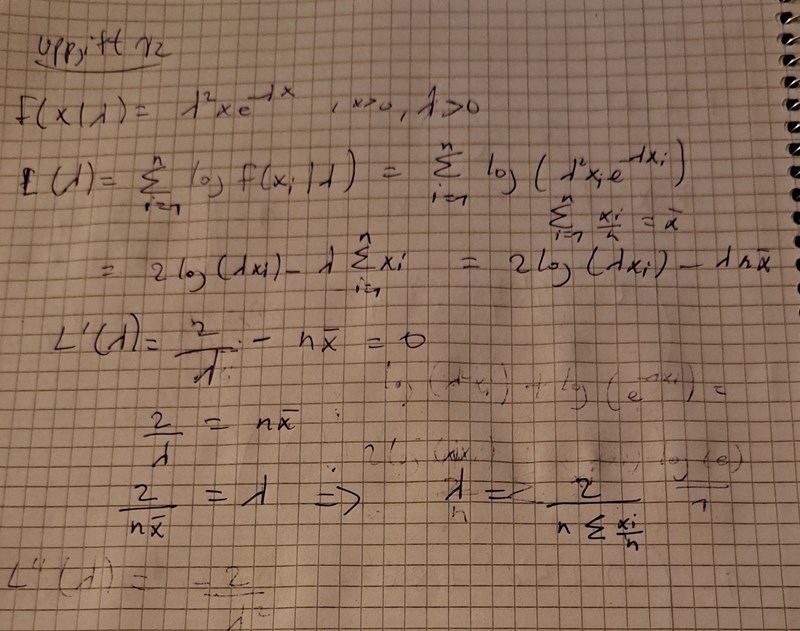 Uppgift 12
f(x|λ) = λ²xe^{-λx} , x>0, λ>0
L(λ) = Σ_{i=1}^{n} log f(x_i|λ) = Σ_{i=1}^{n} log(λ²x_i e^{-λx_i})
Σ_{i=1}^{n} x_i/n = x̄
= 2log(λx_i) - λ Σ_{i=1}^{n} x_i = 2log(λx_i) - λnx̄
L'(λ) = 2/λ - nx̄ = 0
log(λ²x_i) + log(e^{-λx_i}) =
2/λ = nx̄
log(e)
2/(nx̄) = λ => λ/n = 2/(n Σ x_i/n)
1
L''(λ) = -2/λ²